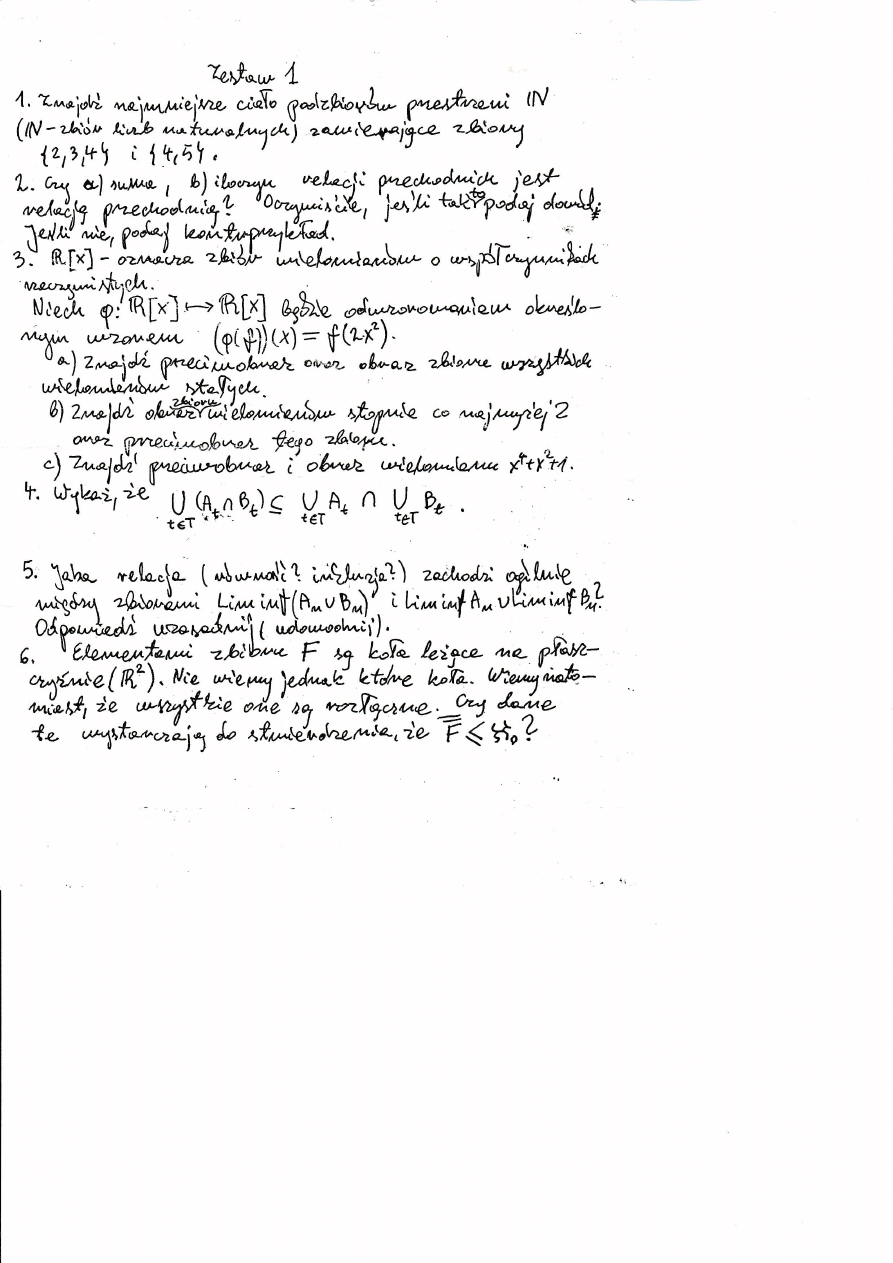 Zestaw 1
1. Znajdź najmniejsze ciało podzbiorów przestrzeni ℕ
(ℕ-zbiór liczb naturalnych) zawierające zbiory
{2,3,4} i {4,5}.
2. Czy a) suma, b) iloczyn relacji przechodnich jest
relacją przechodnią? Oczywiście, jeśli tak to podaj dowód,
Jeśli nie, podaj kontrprzykład.
3. ℝ[x] - oznacza zbiór wielomianów o współczynnikach
rzeczywistych.
Niech φ: ℝ[x] ↦ ℝ[x] będzie odwzorowaniem określo-
nym wzorem (φ(f))(x) = f(2x²).
a) Znajdź przeciwobraz oraz obraz zbioru wszystkich
wielomianów stałych.
b) Znajdź obraz zbioru wielomianów stopnia co najwyżej 2
oraz przeciwobraz tego zbioru.
c) Znajdź przeciwobraz i obraz wielomianu x⁴+x²+1.
4. Wykaż, że ⋃_{t∈T} (A_t ∩ B_t) ⊆ ⋃_{t∈T} A_t ∩ ⋃_{t∈T} B_t .
5. Jaka relacja (równość? inkluzja?) zachodzi ogólnie
między zbiorami Lim inf (A_n ∪ B_n) i Lim inf A_n ∪ Lim inf B_n?
Odpowiedź uzasadnij (udowodnij).
6. Elementami zbioru F są koła leżące na płasz-
czyźnie (ℝ²). Nie wiemy jednak które koła. Wiemy nato-
miast, że wszystkie one są rozłączne. Czy dane
te wystarczają do stwierdzenia, że F̿ ≤ ℵ₀?